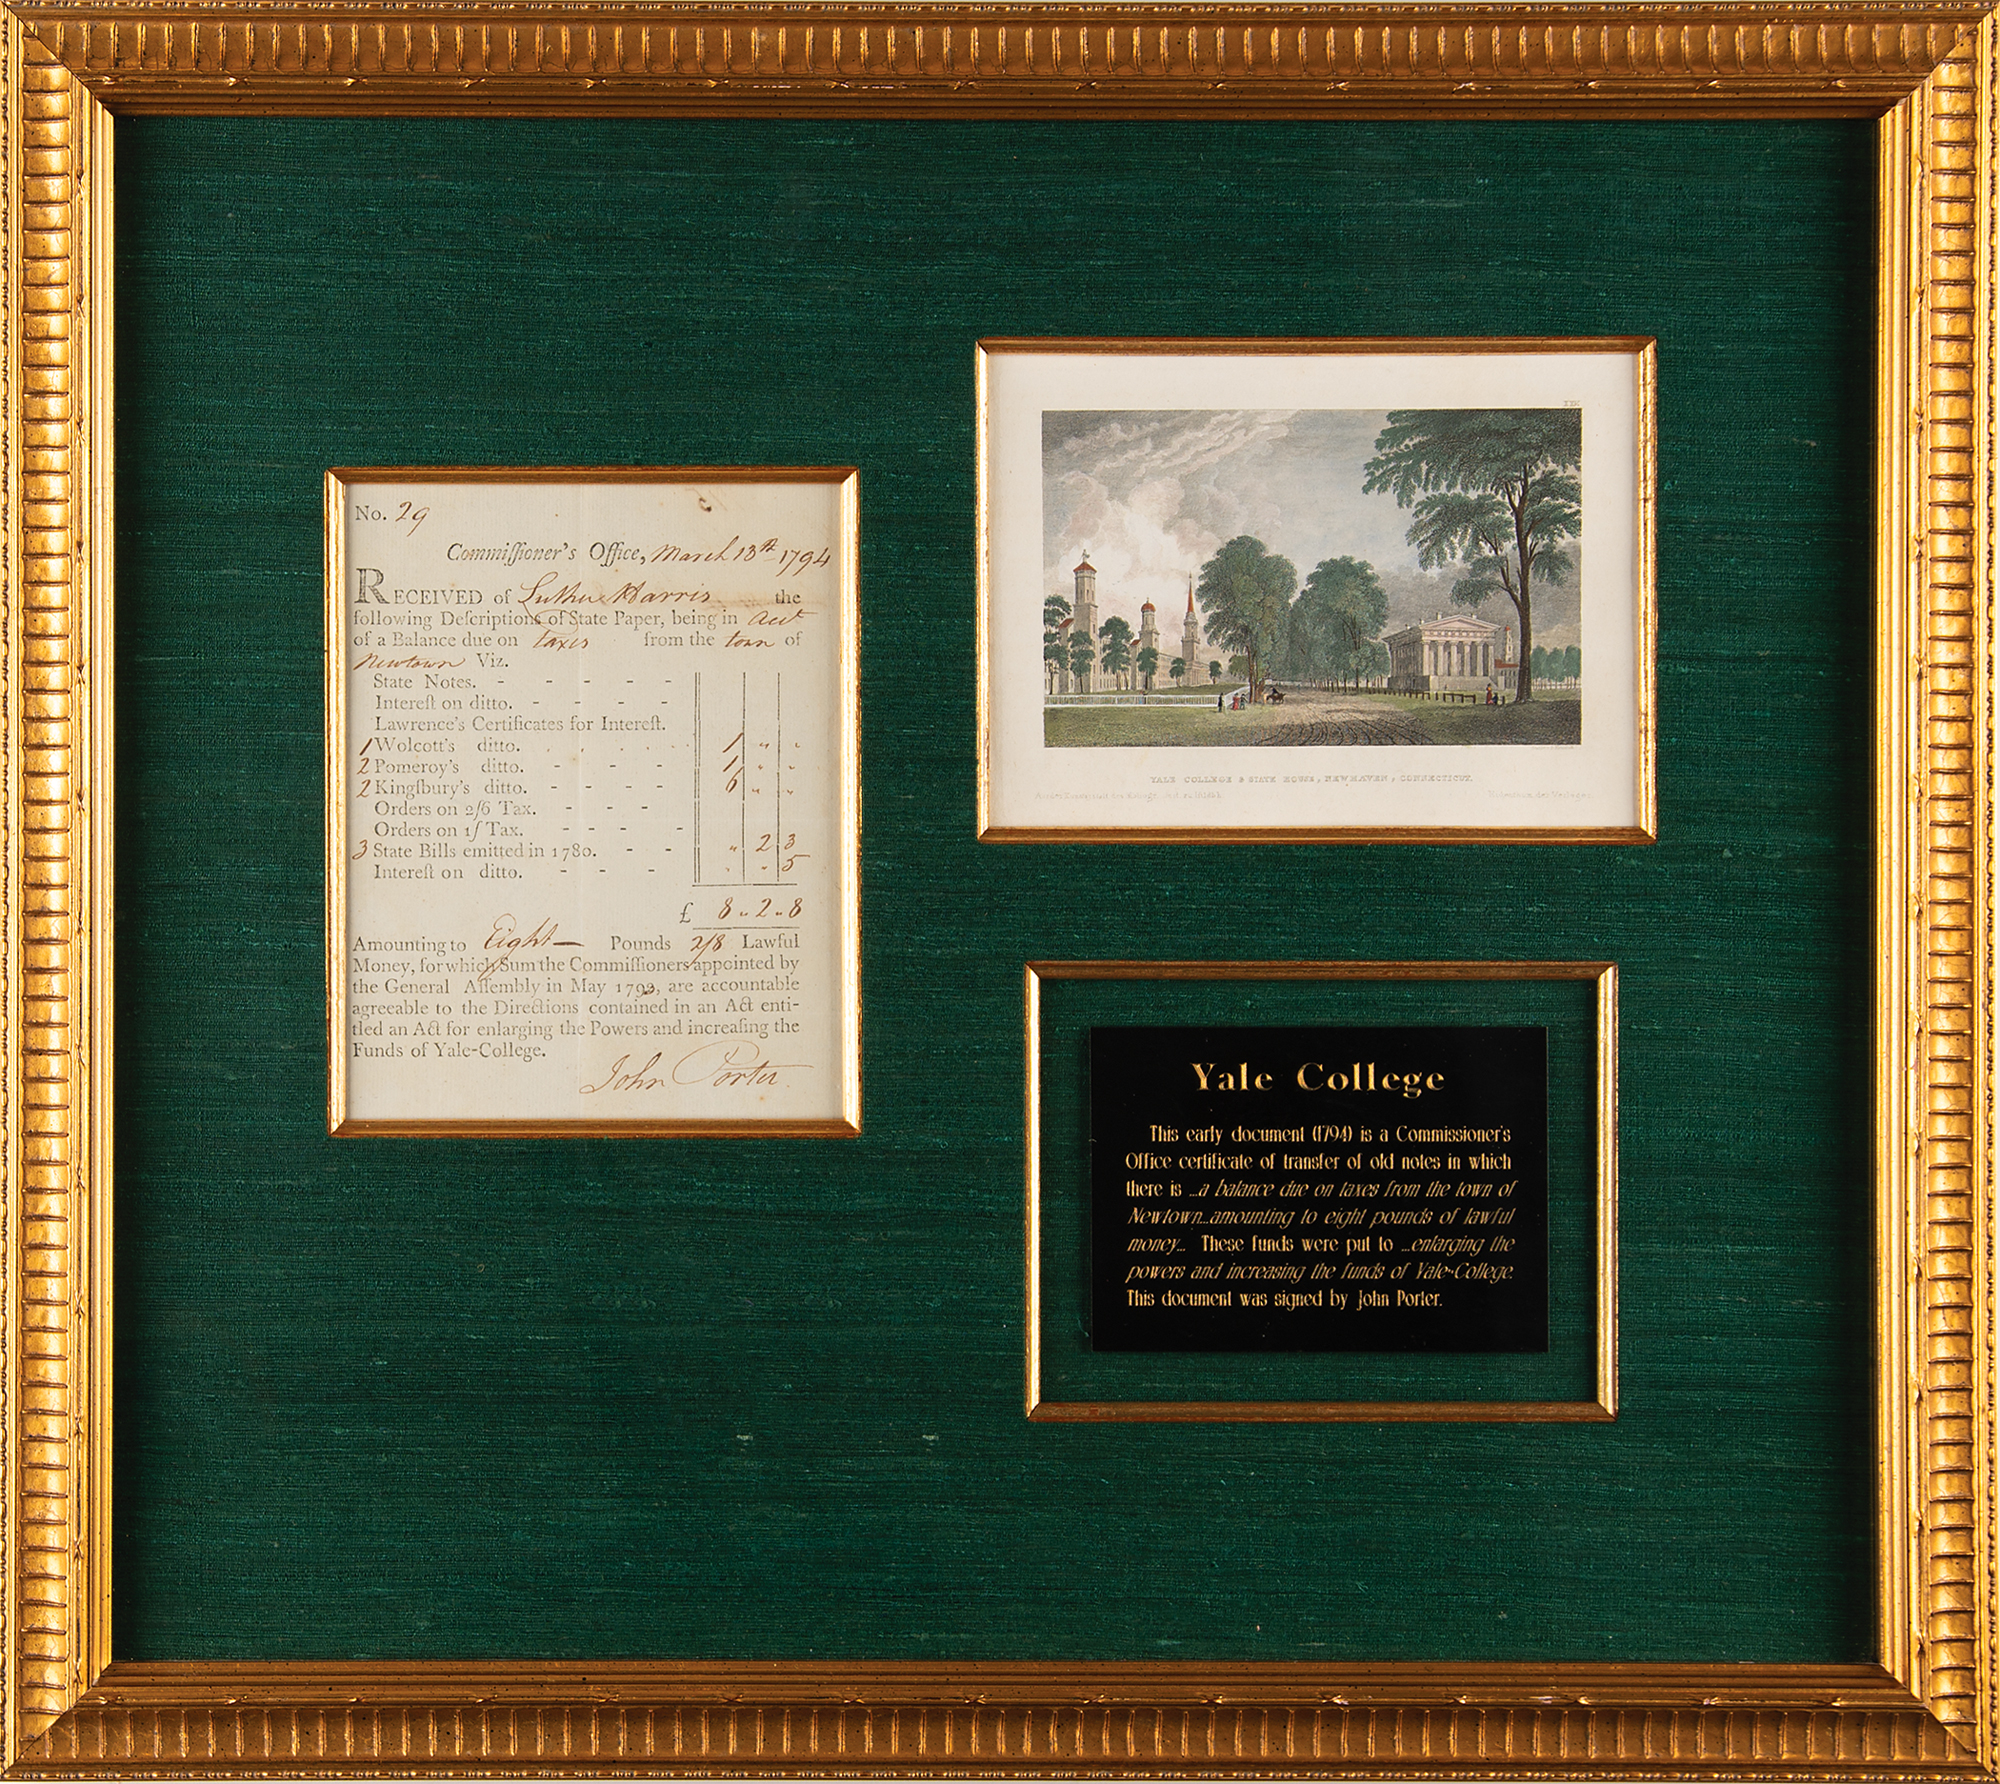 No. 29
Commiſſioner's Office, March 13th 1794
RECEIVED of Luther Harris the
following Deſcriptions of State Paper, being in Acct
of a Balance due on taxes from the town of
Newtown Viz.
State Notes. - - - - -
Intereſt on ditto. - - - -
Lawrence's Certificates for Intereſt.
1 Wolcott's ditto. 1 " "
2 Pomeroy's ditto. - - - - 1 " "
2 Kingſbury's ditto. - - - - 6 " "
Orders on 2ſ6 Tax. - - - -
Orders on 1ſ Tax. - - - -
3 State Bills emitted in 1780. - - " 2 3
Intereſt on ditto. - - - " " 5
£ 8 " 2 " 8
Amounting to Eight— Pounds 2/8 Lawful
Money, for which Sum the Commiſſioners appointed by
the General Aſſembly in May 1792, are accountable
agreeable to the Directions contained in an Act enti-
tled an Act for enlarging the Powers and increaſing the
Funds of Yale-College.
John Porter
YALE COLLEGE & STATE HOUSE, NEWHAVEN, CONNECTICUT.
Yale College
This early document (1794) is a Commissioner's
Office certificate of transfer of old notes in which
there is ...a balance due on taxes from the town of
Newtown...amounting to eight pounds of lawful
money... These funds were put to ...enlarging the
powers and increasing the funds of Yale-College.
This document was signed by John Porter.